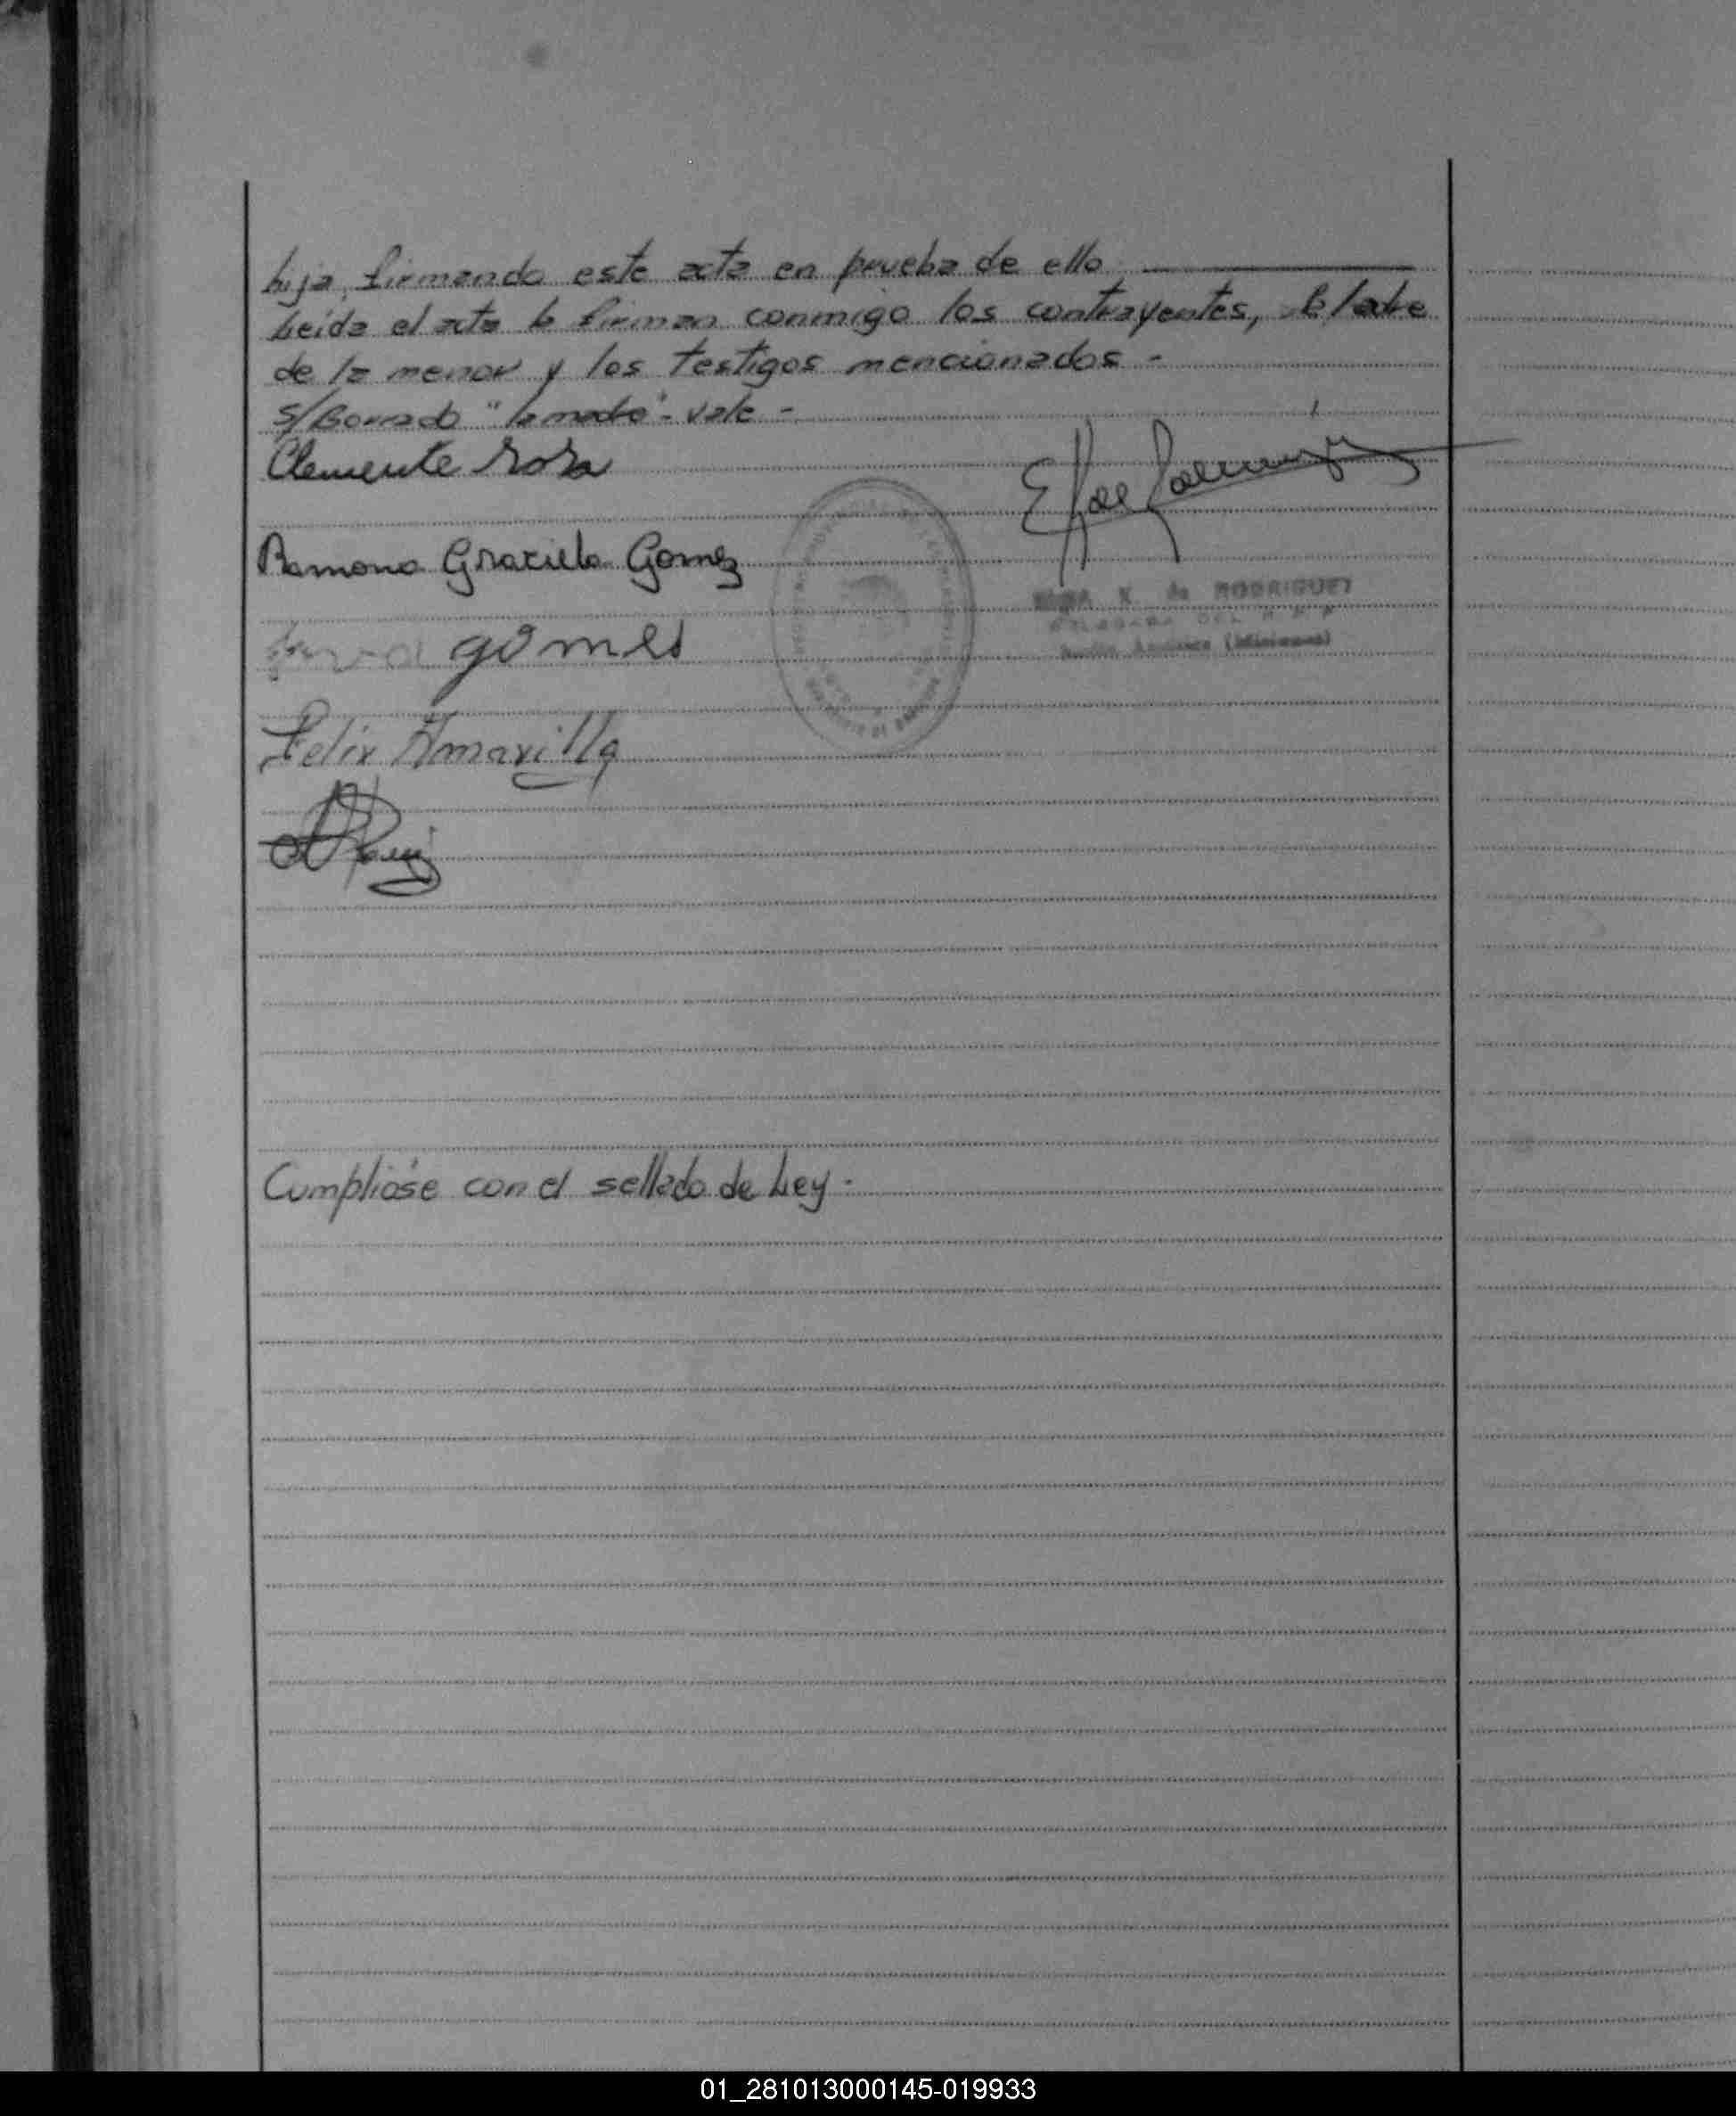 hija, firmando este acta en prueba de ello
Leida el acta la firman conmigo los contrayentes,
de la menor y los testigos mencionados -
S/Borrado "la madre" - vale -
Clemente Rosa
Ramona Graciela Gomez
gomes
de RODRIGUEZ
(Misiones)
Felix Amarilla
Cumplióse con el sellado de Ley -
01_281013000145-019933